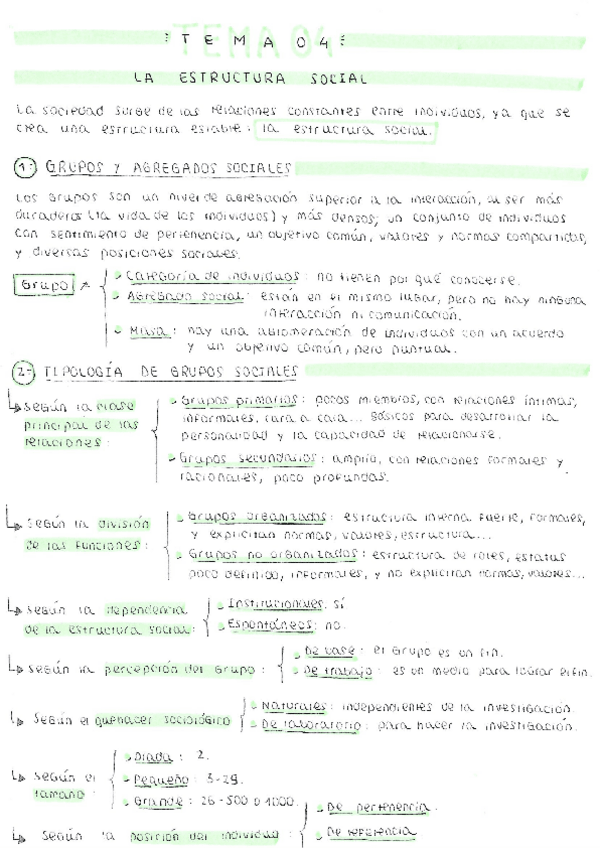 TEMA 04
LA ESTRUCTURA SOCIAL
La sociedad surge de las relaciones constantes entre individuos, ya que se
crea una estructura estable: la estructura social.
1- GRUPOS Y AGREGADOS SOCIALES
Los grupos son un nivel de agregación superior a la interacción, al ser más
duraderos (la vida de los individuos) y más densos; un conjunto de individuos
con sentimiento de pertenencia, un objetivo común, valores y normas compartidas,
y diversas posiciones sociales.
Grupo ≠
Categoría de individuos: no tienen por qué conocerse.
Agregado social: están en el mismo lugar, pero no hay ninguna
interacción ni comunicación.
Masa: hay una aglomeración de individuos con un acuerdo
y un objetivo común, pero puntual.
2- TIPOLOGÍA DE GRUPOS SOCIALES
Según la clase
principal de las
relaciones:
Grupos primarios: pocos miembros, con relaciones íntimas,
informales, cara a cara... Básicos para desarrollar la
personalidad y la capacidad de relacionarse.
Grupos secundarios: amplio, con relaciones formales y
racionales, poco profundas.
Según la división
de las funciones:
Grupos organizados: estructura interna fuerte, formales,
y explicitan normas, valores, estructura...
Grupos no organizados: estructura de roles, estatus
poco definido, informales, y no explicitan normas, valores...
Según la dependencia
de la estructura social:
Institucionales: sí.
Espontáneos: no.
Según la percepción del grupo:
De base: el grupo es un fin.
De trabajo: es un medio para lograr el fin.
Según el quehacer sociológico
Naturales: independientes de la investigación.
De laboratorio: para hacer la investigación.
Según el
tamaño:
Diada: 2.
Pequeño: 3-25.
Grande: 26-500 o 1000.
Según la posición del individuo:
De pertenencia.
De referencia